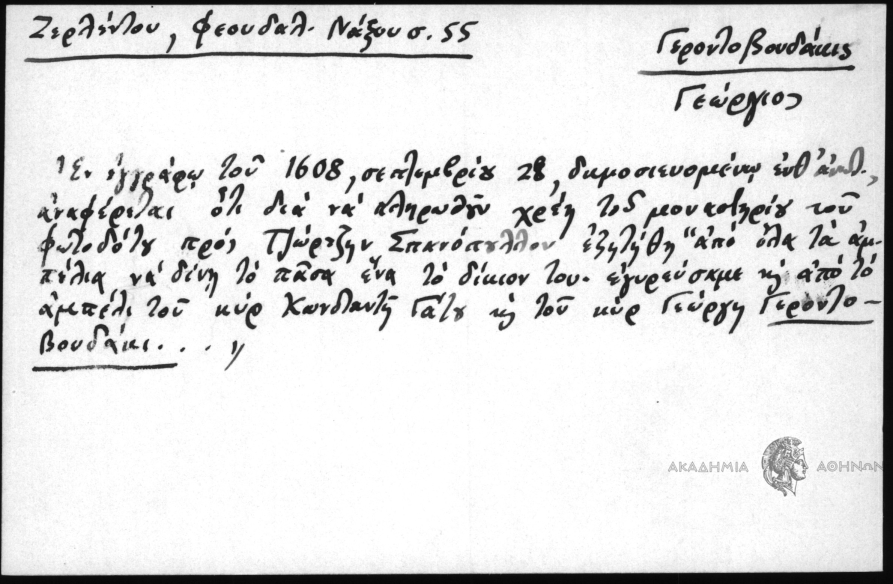 Ζερλέντου, Φεουδαλ. Νάξου σ. 55
Γεροντοβουδάκις
Γεώργιος
Ἐν ἐγγράφῳ τοῦ 1608, σεπτεμβρίου 28, δημοσιευομένῳ ἐνθ' ἀνωτ.,
ἀναφέρεται ὅτι διά νά πληρωθοῦν χρέη τοῦ μοναστηρίου τοῦ
Φωτοδότου πρός Τζώρτζην Σπανόπουλλον ἐζητήθη "ἀπό ὅλα τά ἀμ-
πέλια νά δίνη τό πᾶσα ἕνα τό δίκιον του. ἐγυρεύσαμε κ̀ ἀπό τό
ἀμπέλι τοῦ κύρ Κωνσταντῆ Γάτου κ̀ τοῦ κύρ Γεώργη Γεροντο-
βουδάκι . . . "
ΑΚΑΔΗΜΙΑ ΑΘΗΝΩΝ